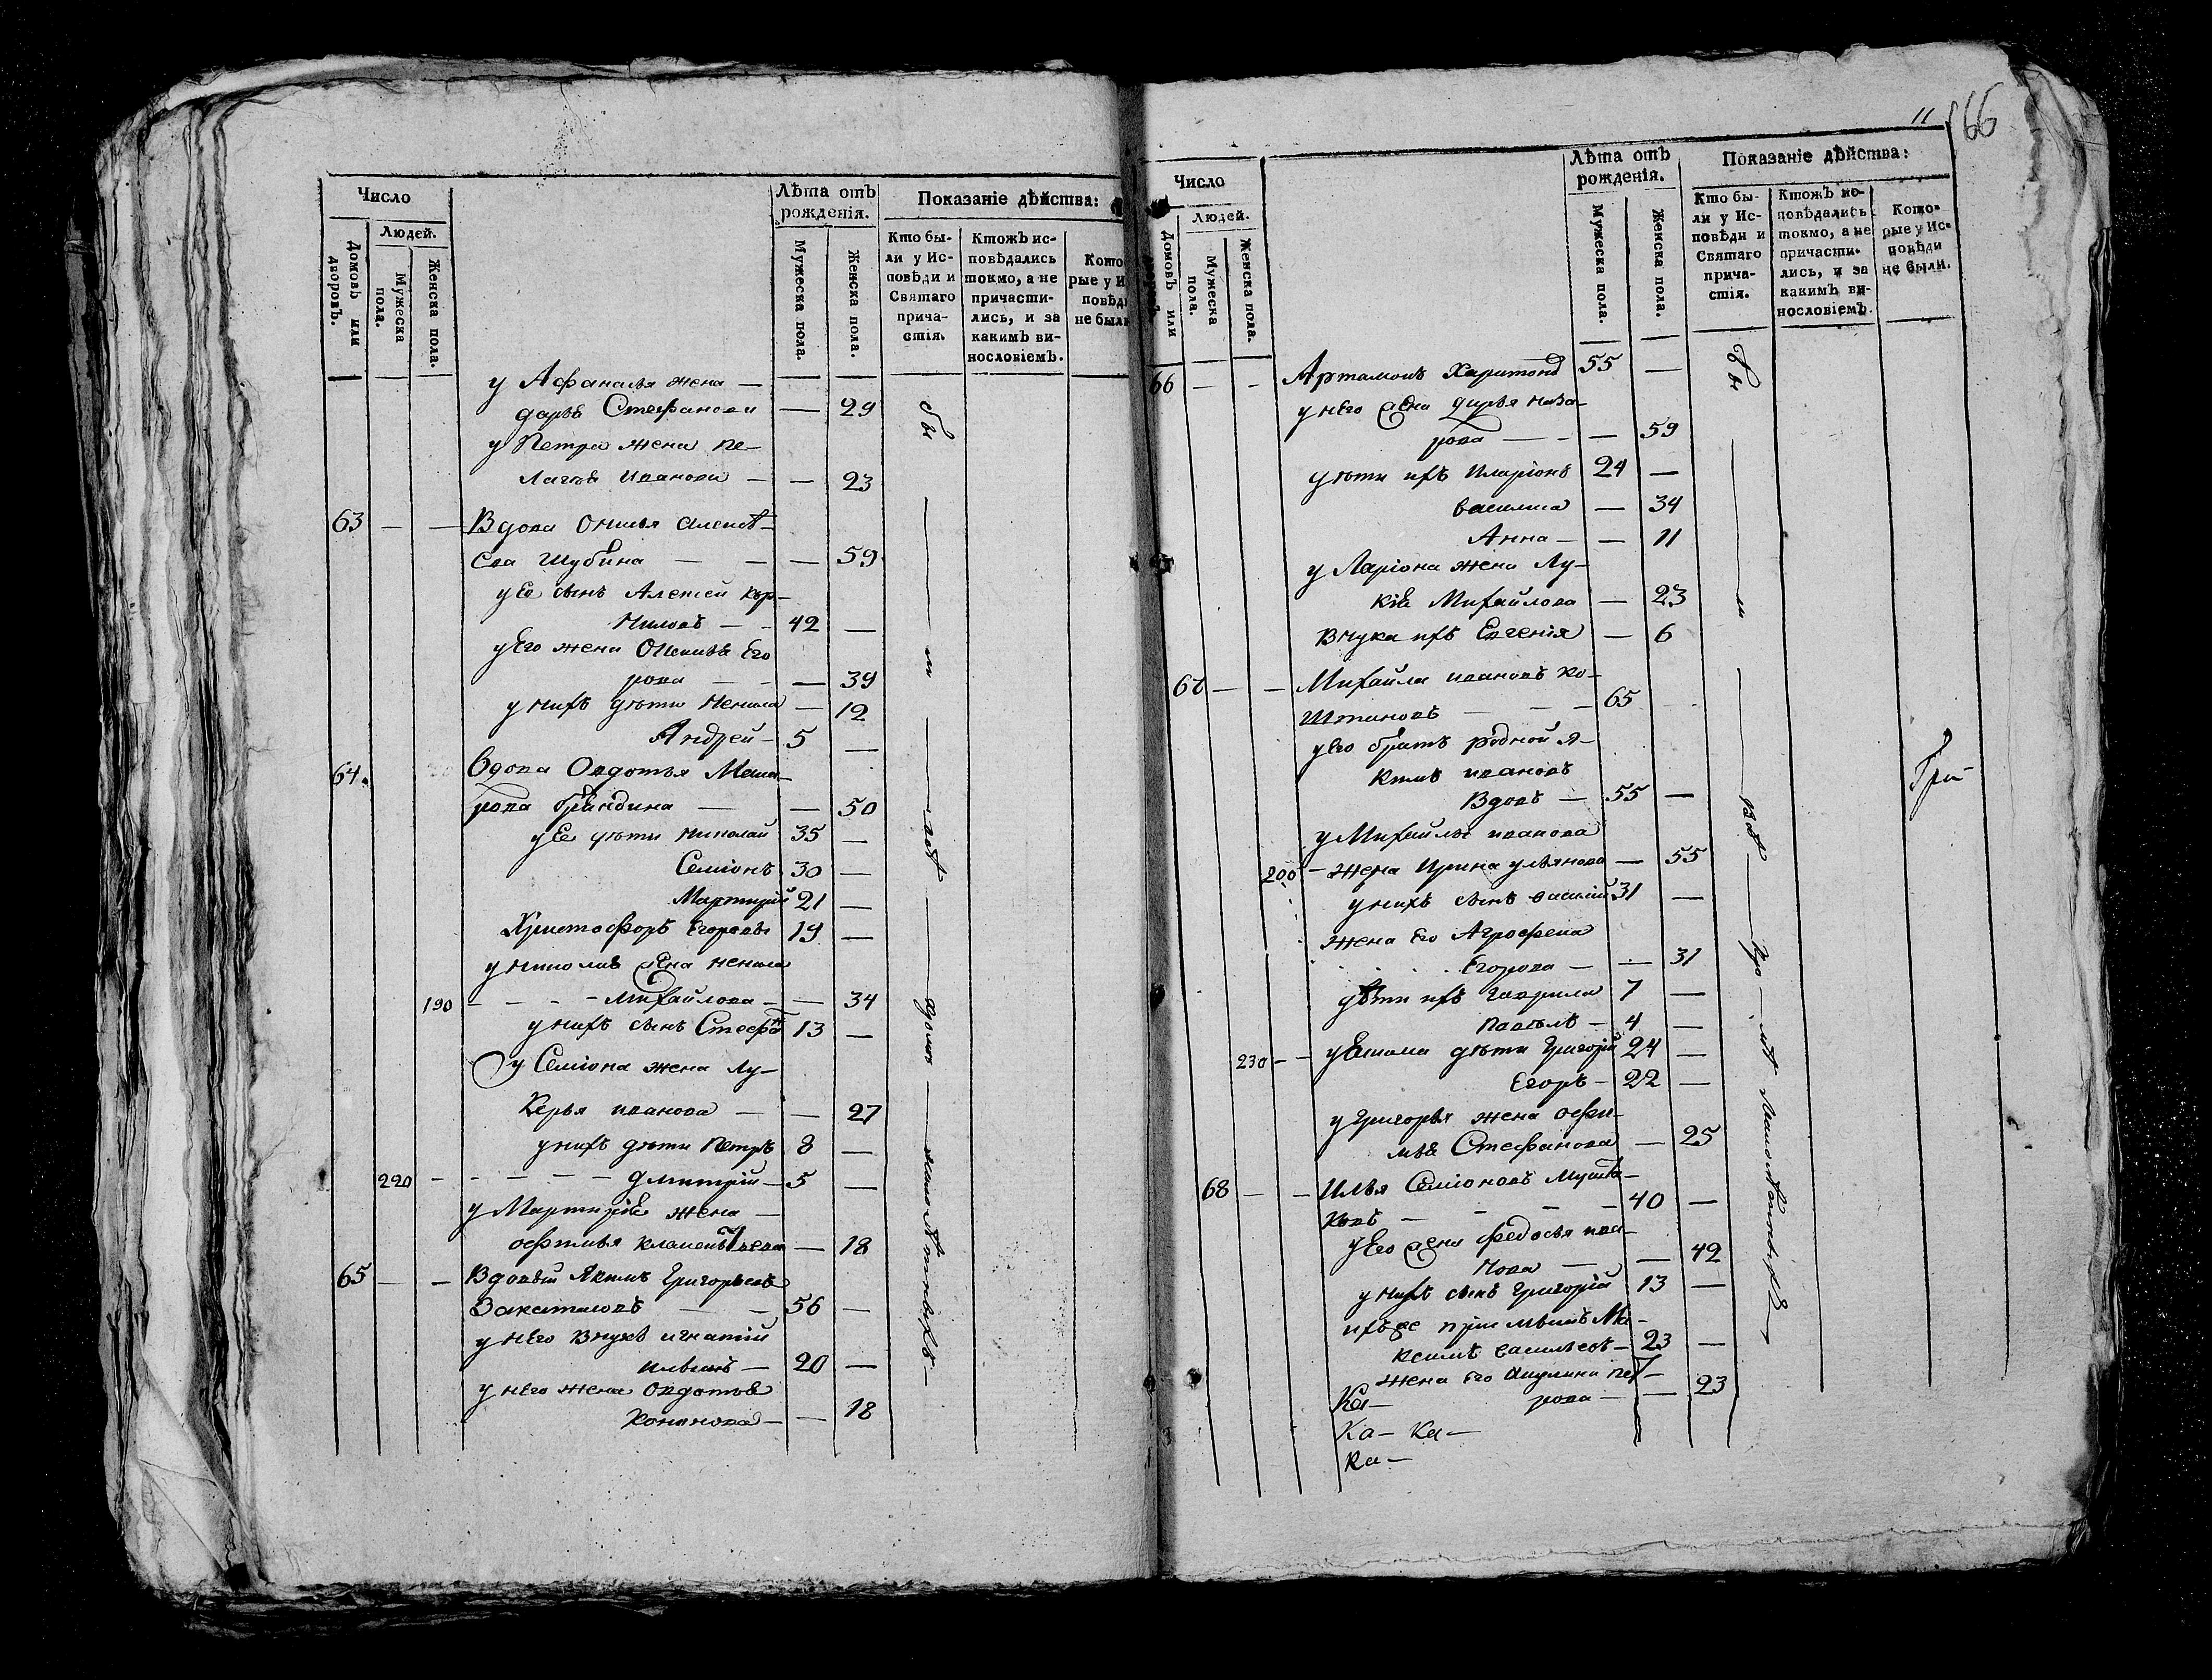 Число
Людей.
Домовъ или дворовъ.
Мужеска пола.
Женска пола.
Лѣта отъ рожденія.
Мужеска пола.
Женска пола.
Показаніе дѣйства:
Кто бы-
ли у Ис-
повѣди и
Святаго
прича-
стія.
Ктожъ ис-
повѣдались
токмо, а не
причасти-
лись, и за
какимъ ви-
нословіемъ.
Кото
рые у И
повѣд
не был
у Афанасья жена —
дарья Стефанова — 29
у Петра жена пе-
лагѣя иванова — — 23
63 — — Вдова
ева Шубина — — — 59
у Ее сынъ Алексей кор-
ниловъ — — 42 —
у Его жена Его
рова — — — 39
у нихъ дѣти Ненила — 12
Андрей — 5 —
64. Вдова Овдотья
рова — — 50
у Ее дѣти николай 35 —
Семіонъ 30 —
Мартирій 21 —
Христофоръ Егоровы 19 —
у николая жена ненила
190 — — — Михайлова — — 34
у нихъ сынъ Стефанъ 13 —
у Семіона жена Лу-
керья иванова — — 27
у нихъ дѣти Петръ 8 —
220 — — — — дмитрій — 5 —
у Мартирія жена —
— 18
65 — — Вдовый Якимъ Григорьевъ
— — 56 —
у него внукъ игнатій
— 20 —
у него жена Овдотья
Кононова — — 18
бы ли
11
166
Число
Людей.
Домовъ или
Мужеска пола.
Женска пола.
Лѣта отъ
рожденія.
Мужеска пола.
Женска пола.
Показаніе дѣйства:
Кто бы-
ли у Ис-
повѣди и
Святаго
прича-
стія.
Ктожъ ис-
повѣдались
токмо, а не
причасти-
лись, и за
какимъ ви-
нословіемъ.
Кото-
рые у Ис-
повѣди
не были.
66 — — Артамонъ Харитоно 55 —
у него жена дарья наза-
рова — — — 59
дѣти ихъ иларіонъ 24 —
василиса — 34
Анна — — 11
у Ларіона жена Лу-
кія Михайлова — 23
внука ихъ Евгенія — 6
67 — — Михайла ивановъ ко-
штановъ — — — 65
у Его братъ родной я-
кимъ ивановъ
вдовъ — 55 —
у Михайлы иванова
200 — жена Ирина ульянова — 55
у нихъ сынъ василій 31 —
жена Его Агрофена
Егорова — — 31
дѣти ихъ гаврила 7 —
павелъ — 4 —
230 — — у Якима дѣти григорій 24 —
Егоръ — 22 —
у григорья жена офи-
мья Стефанова — 25
68 — — Илья Семіоновъ
ковъ — — — — 40 —
у Его жена федосья ива-
нова — — 42
у нихъ сынъ григорій 13 —
ихъ же Ма-
ксимъ васильевъ — 23 —
жена Его Акулина пет-
рова — — 23
Ка —
Ка — Ка —
Ка —
бы ли
Гри-